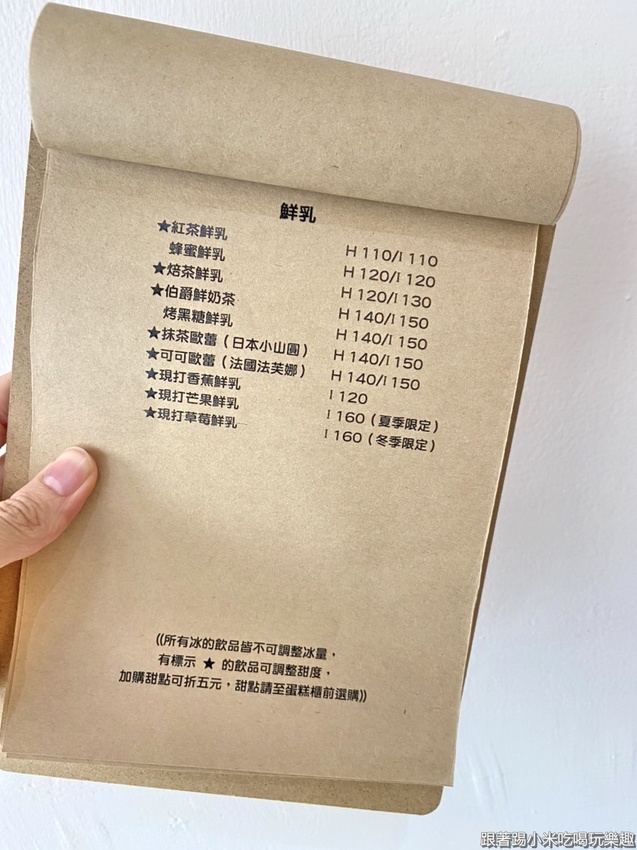 鮮乳
★紅茶鮮乳 H 110/I 110
蜂蜜鮮乳 H 120/I 120
★焙茶鮮乳 H 120/I 130
★伯爵鮮奶茶 H 140/I 150
烤黑糖鮮乳 H 140/I 150
★抹茶歐蕾（日本小山園） H 140/I 150
★可可歐蕾（法國法芙娜） H 140/I 150
★現打香蕉鮮乳 I 120
★現打芒果鮮乳 I 160（夏季限定）
★現打草莓鮮乳 I 160（冬季限定）
((所有冰的飲品皆不可調整冰量，
有標示 ★ 的飲品可調整甜度，
加購甜點可折五元，甜點請至蛋糕櫃前選購))
跟著踢小米吃喝玩樂趣